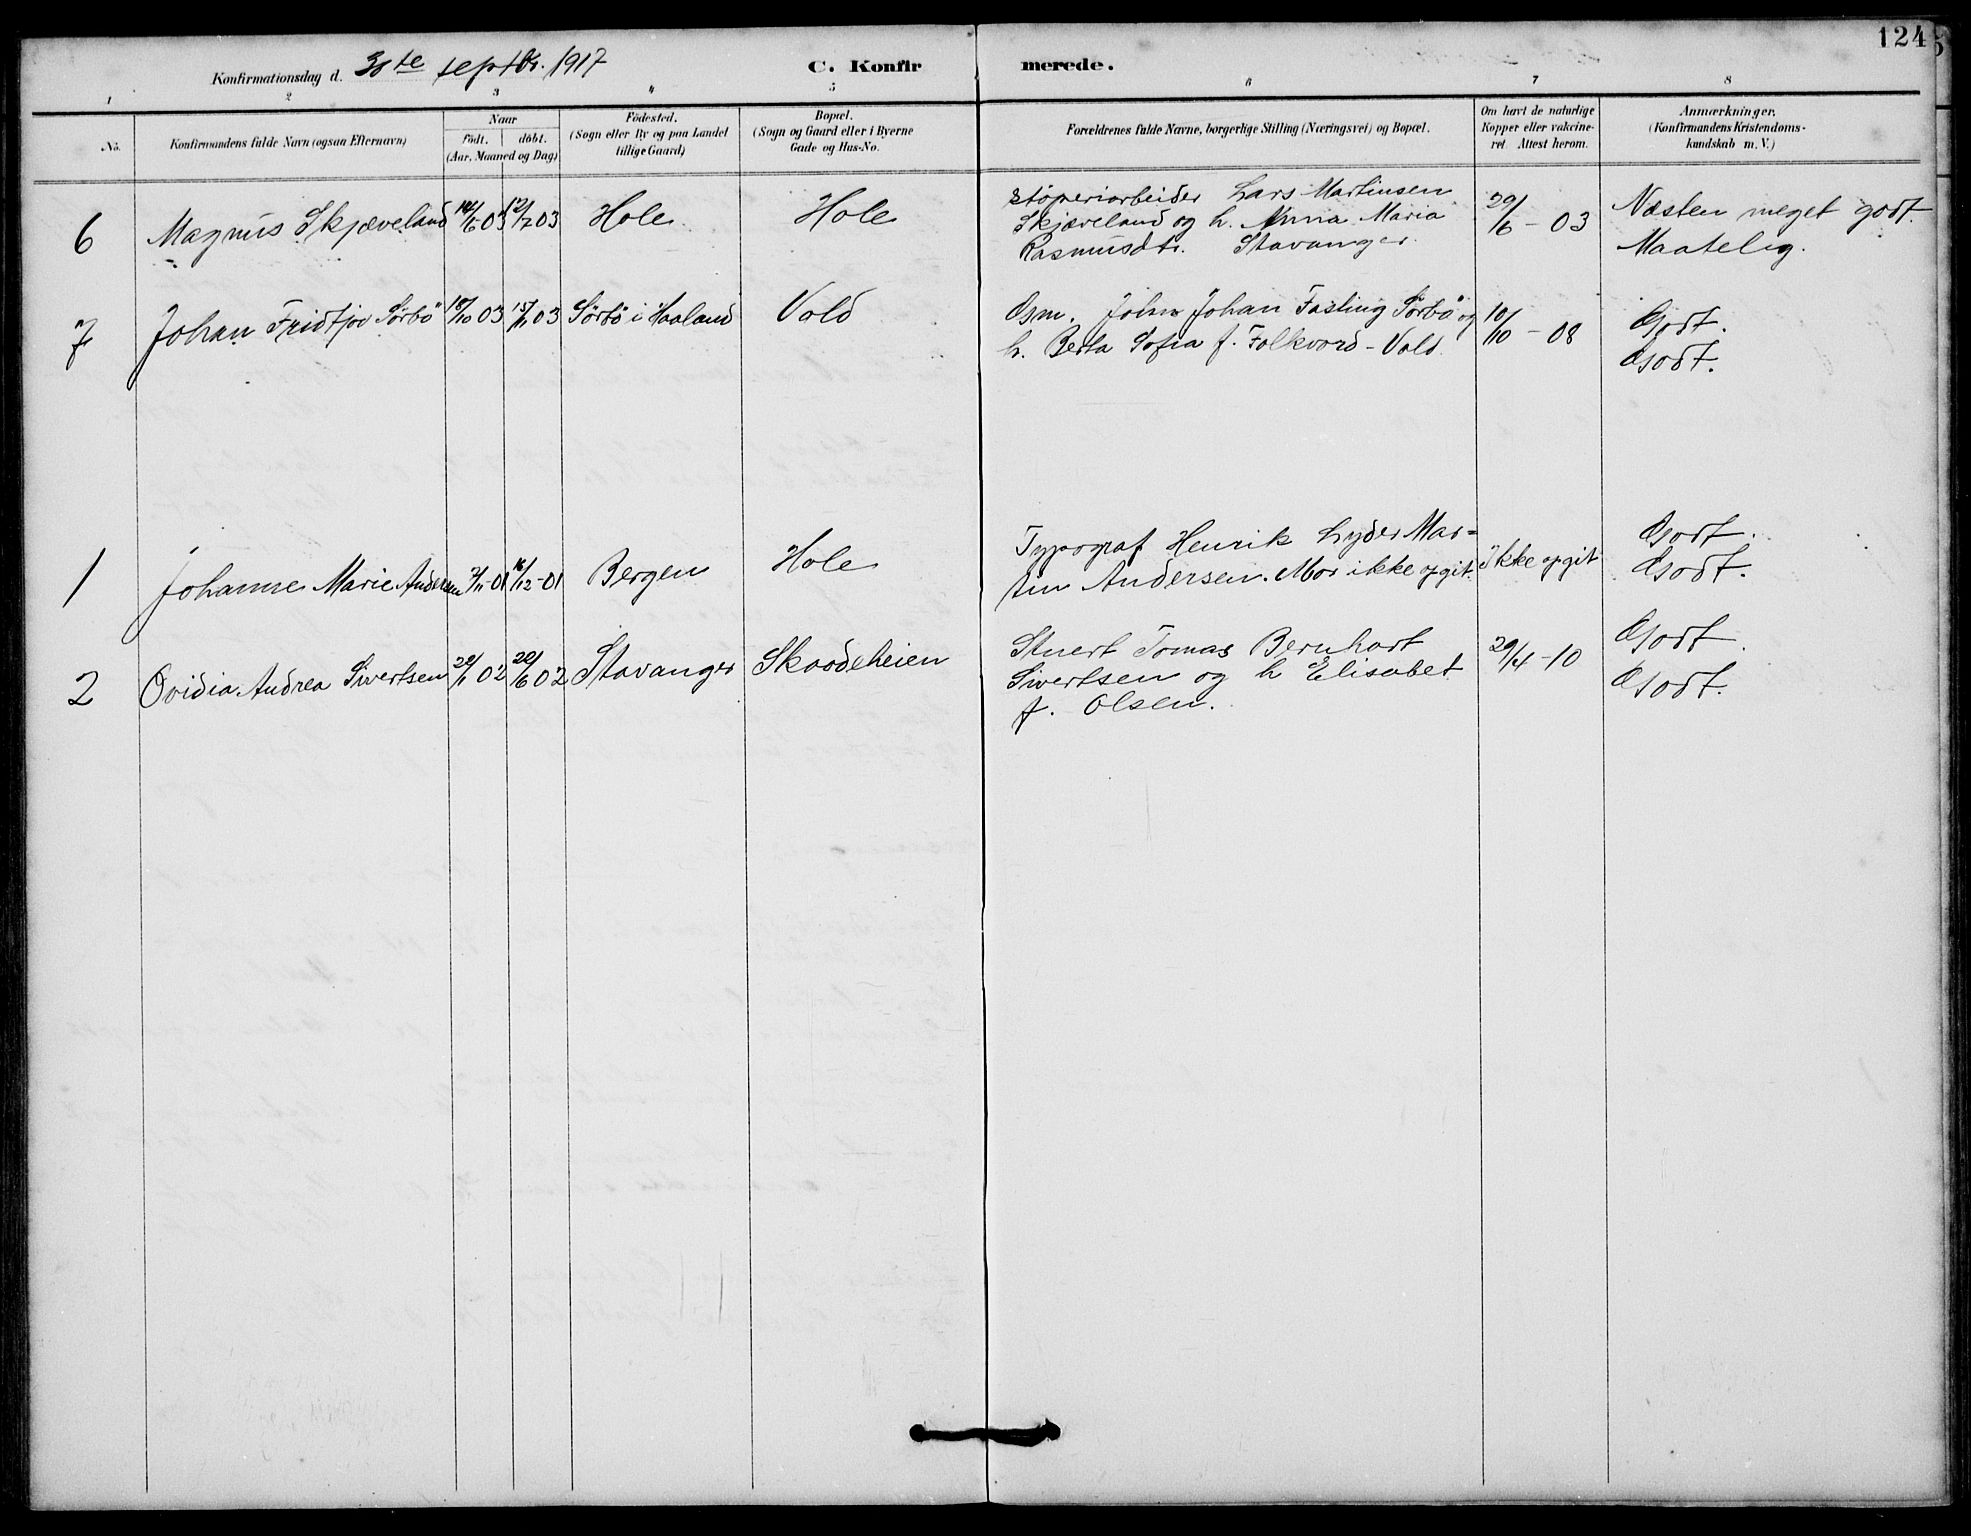 124
Konfirmationsdag d. 30te septbr. 1917
C. Konfirmerede.
1 2 3 4 5 6 7 8
No.
Konfirmandens fulde Navn (ogsaa Efternavn)
Naar
født. døbt.
(Aar, Maaned og Dag)
Fødested.
(Sogn eller By og paa Landet
tillige Gaard)
Bopæl.
(Sogn og Gaard eller i Byerne
Gade og Hus-No.
Forældrenes fulde Navne, borgerlige Stilling (Næringsvei) og Bopæl.
Om havt de naturlige
Kopper eller vakcine-
ret. Attest herom.
Anmærkninger.
(Konfirmandens Kristendoms-
kundskab m. V.)
6 Magnus Skjæveland 14/6 03 12/7 03 Hole Hole
Støperiarbeider Lars Martinsen
Skjæveland og h. Anna Maria
Rasmusdtr. Stavanger.
29/6 - 03
Næsten meget godt.
Maatelig.
7 Johan Fridtjov Sörbö 18/10 03 15/11 03 Sörbö i Haaland Vold
Gsm. Johan Fasting Sörbö og
h. Berta Sofia f. Folkvord - Vold
10/10 - 08
Godt.
Godt.
1 Johanne Marie Andersen 7/11-01 16/12-01 Bergen Hole
Typograf Henrik Lyder Mar=
tin Andersen. Mor ikke opgit.
Ikke opgit
Godt.
Godt.
2 Ovidia Andrea Sivertsen 20/1 02 20/6 02 Stavanger Skaadeheien
Stuert Tomas Bernhart
Sivertsen og h Elisabet
f. Olsen.
29/4 - 10
Godt.
Godt.